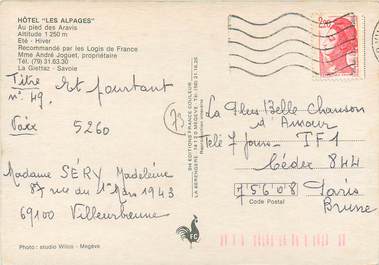 HÔTEL "LES ALPAGES"
Au pied des Aravis
Altitude 1 250 m
Eté - Hiver
Recommandé par les Logis de France
Mme André Joguet, propriétaire
Tél. (79) 31.63.30
La Giettaz - Savoie
Titre Et pourtant
n° 49.
Voix 5260
Madame SÉRY Madeleine
87 rue du 1er Mars 1943
69100 Villeurbanne
Photo : studio Willos - Megève
73
EDITIONS FRANCE COULEUR
FC
La Plus Belle Chanson
d'Amour
Télé 7 Jours - TF1
Cédex 844
75608 Paris
Code Postal
Brune